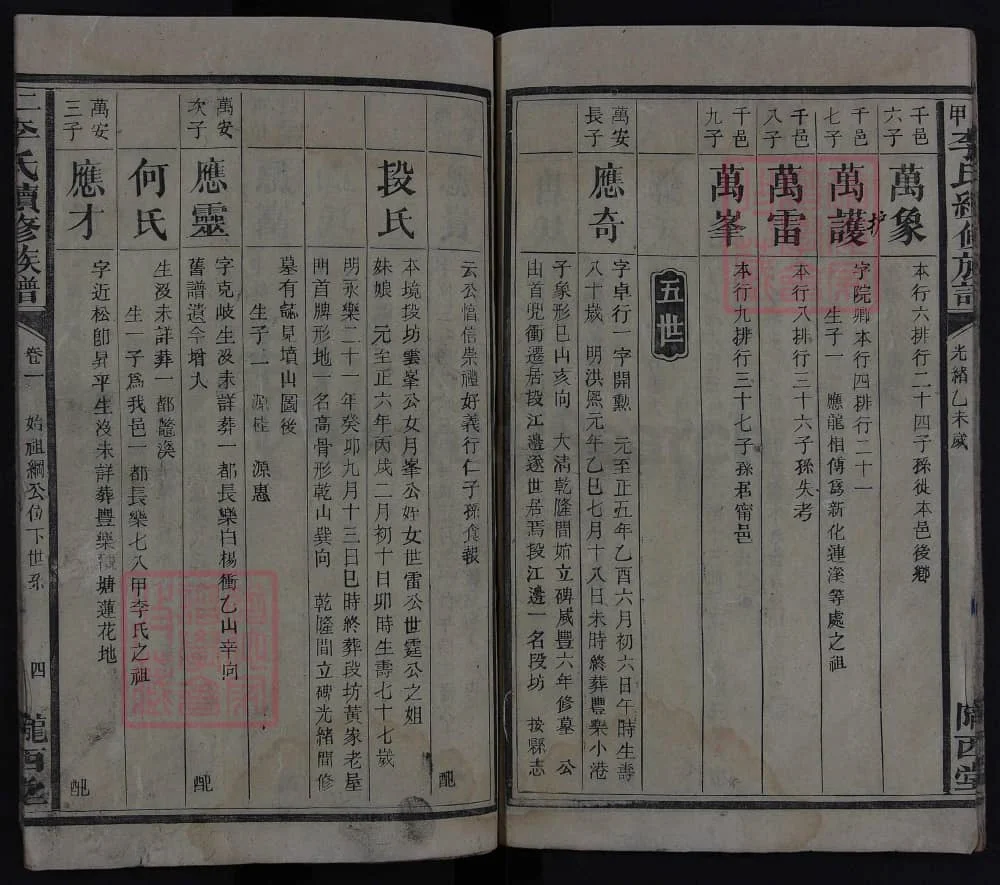 甲李氏續修族譜
光緒乙未歲
隴西堂
千邑六子
萬象
本行六排行二十四子孫徙本邑後鄉
千邑七子
萬護
字院卿本行四排行二十一
生子一 應龍相傳爲新化漣溪等處之祖
千邑八子
萬雷
本行八排行三十六子孫失考
千邑九子
萬峯
本行九排行三十七子孫居甯邑
五世
萬安長子
應奇
字卓行一字開勳 元至正五年乙酉六月初六日午時生壽
八十歲 明洪熙元年乙巳七月十八日未時終葬豐樂小港
子象形巳山亥向 大淸乾隆間始立碑咸豐六年修墓 公
由首兜衝遷居段江邊遂世居焉段江邊一名段坊 按縣志
云公愭信崇禮好義行仁子孫食報
配
段氏
本境坄坊雲峯公女月峯公姪女世雷公世霆公之姐
妹娘 元至正六年丙戌二月初十日卯時生壽七十七歲
明永樂二十一年癸卯九月十三日巳時終葬段坊黃家老屋
門首牌形地一名高骨形乾山巽向 乾隆間立碑光緒間修
墓有誌見墳山圖後
生子二 源桂 源惠
萬安次子
應靈
字克岐生歿未詳葬一都長樂白楊衝乙山辛向
舊譜遺今增入
配
何氏
生歿未詳葬一都鼈溪
生一子爲我邑一都長樂七八甲李氏之祖
萬安三子
應才
字近松師昇平生沒未詳葬豐樂 塘蓮花地
配
李氏續修族譜
卷一
始祖綱公位下世系
四
隴西堂